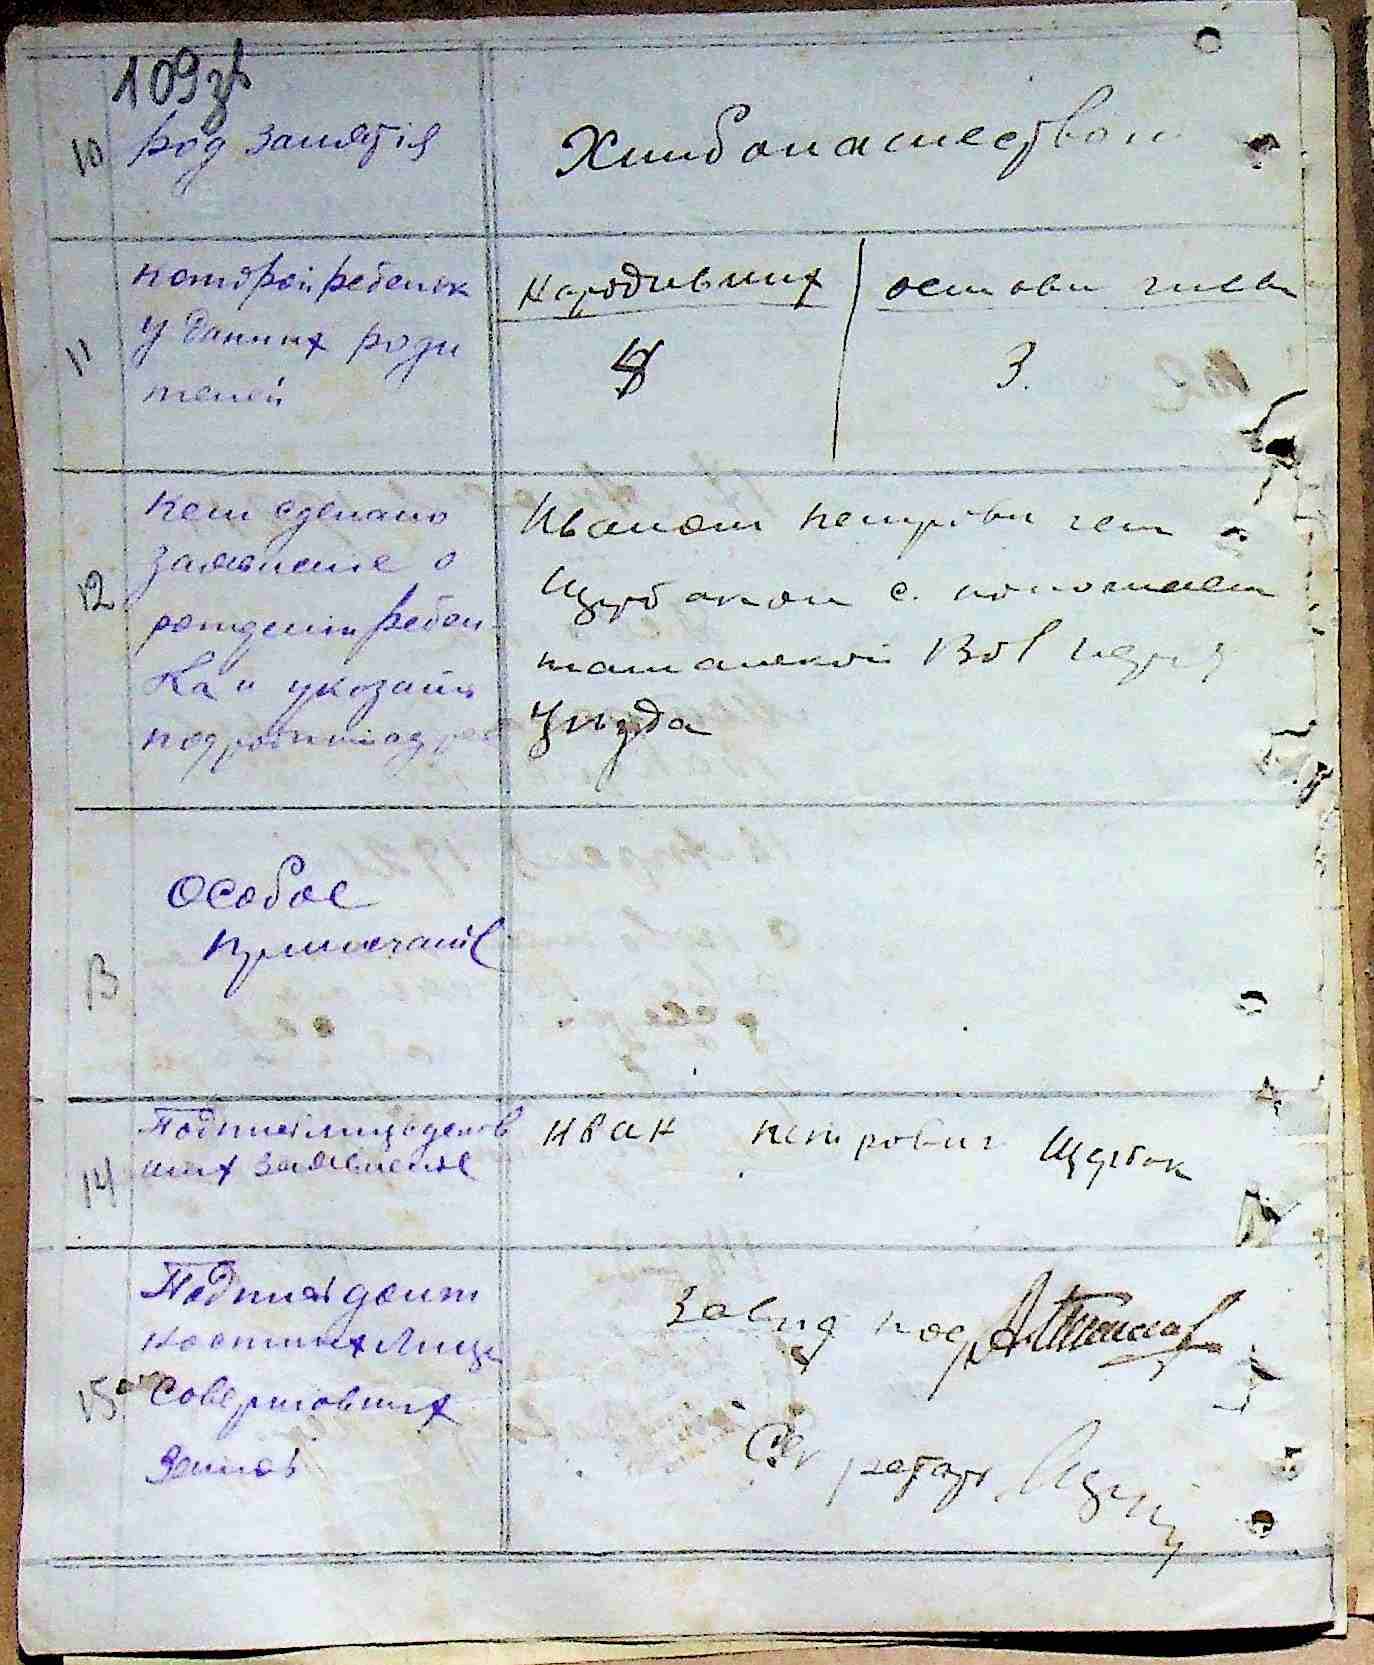 109зв
10 род занятія
Хлибопашеством
11 которой ребенок
у данных роди
телей
народившихся
8
остались живы
3.
12 Кем сделано
заявление о
рождении ребен
ка и указать
подробный адрес
Иваном петровичем
Щербаком с.
Вол
уезда
13 Особое
примечаніе
14 Подписи лиц сделав
ших заявление
иван петрович Щербак
15 Подписи долж
ностных лиц
совершивших
запись
Завид под
Секретарь